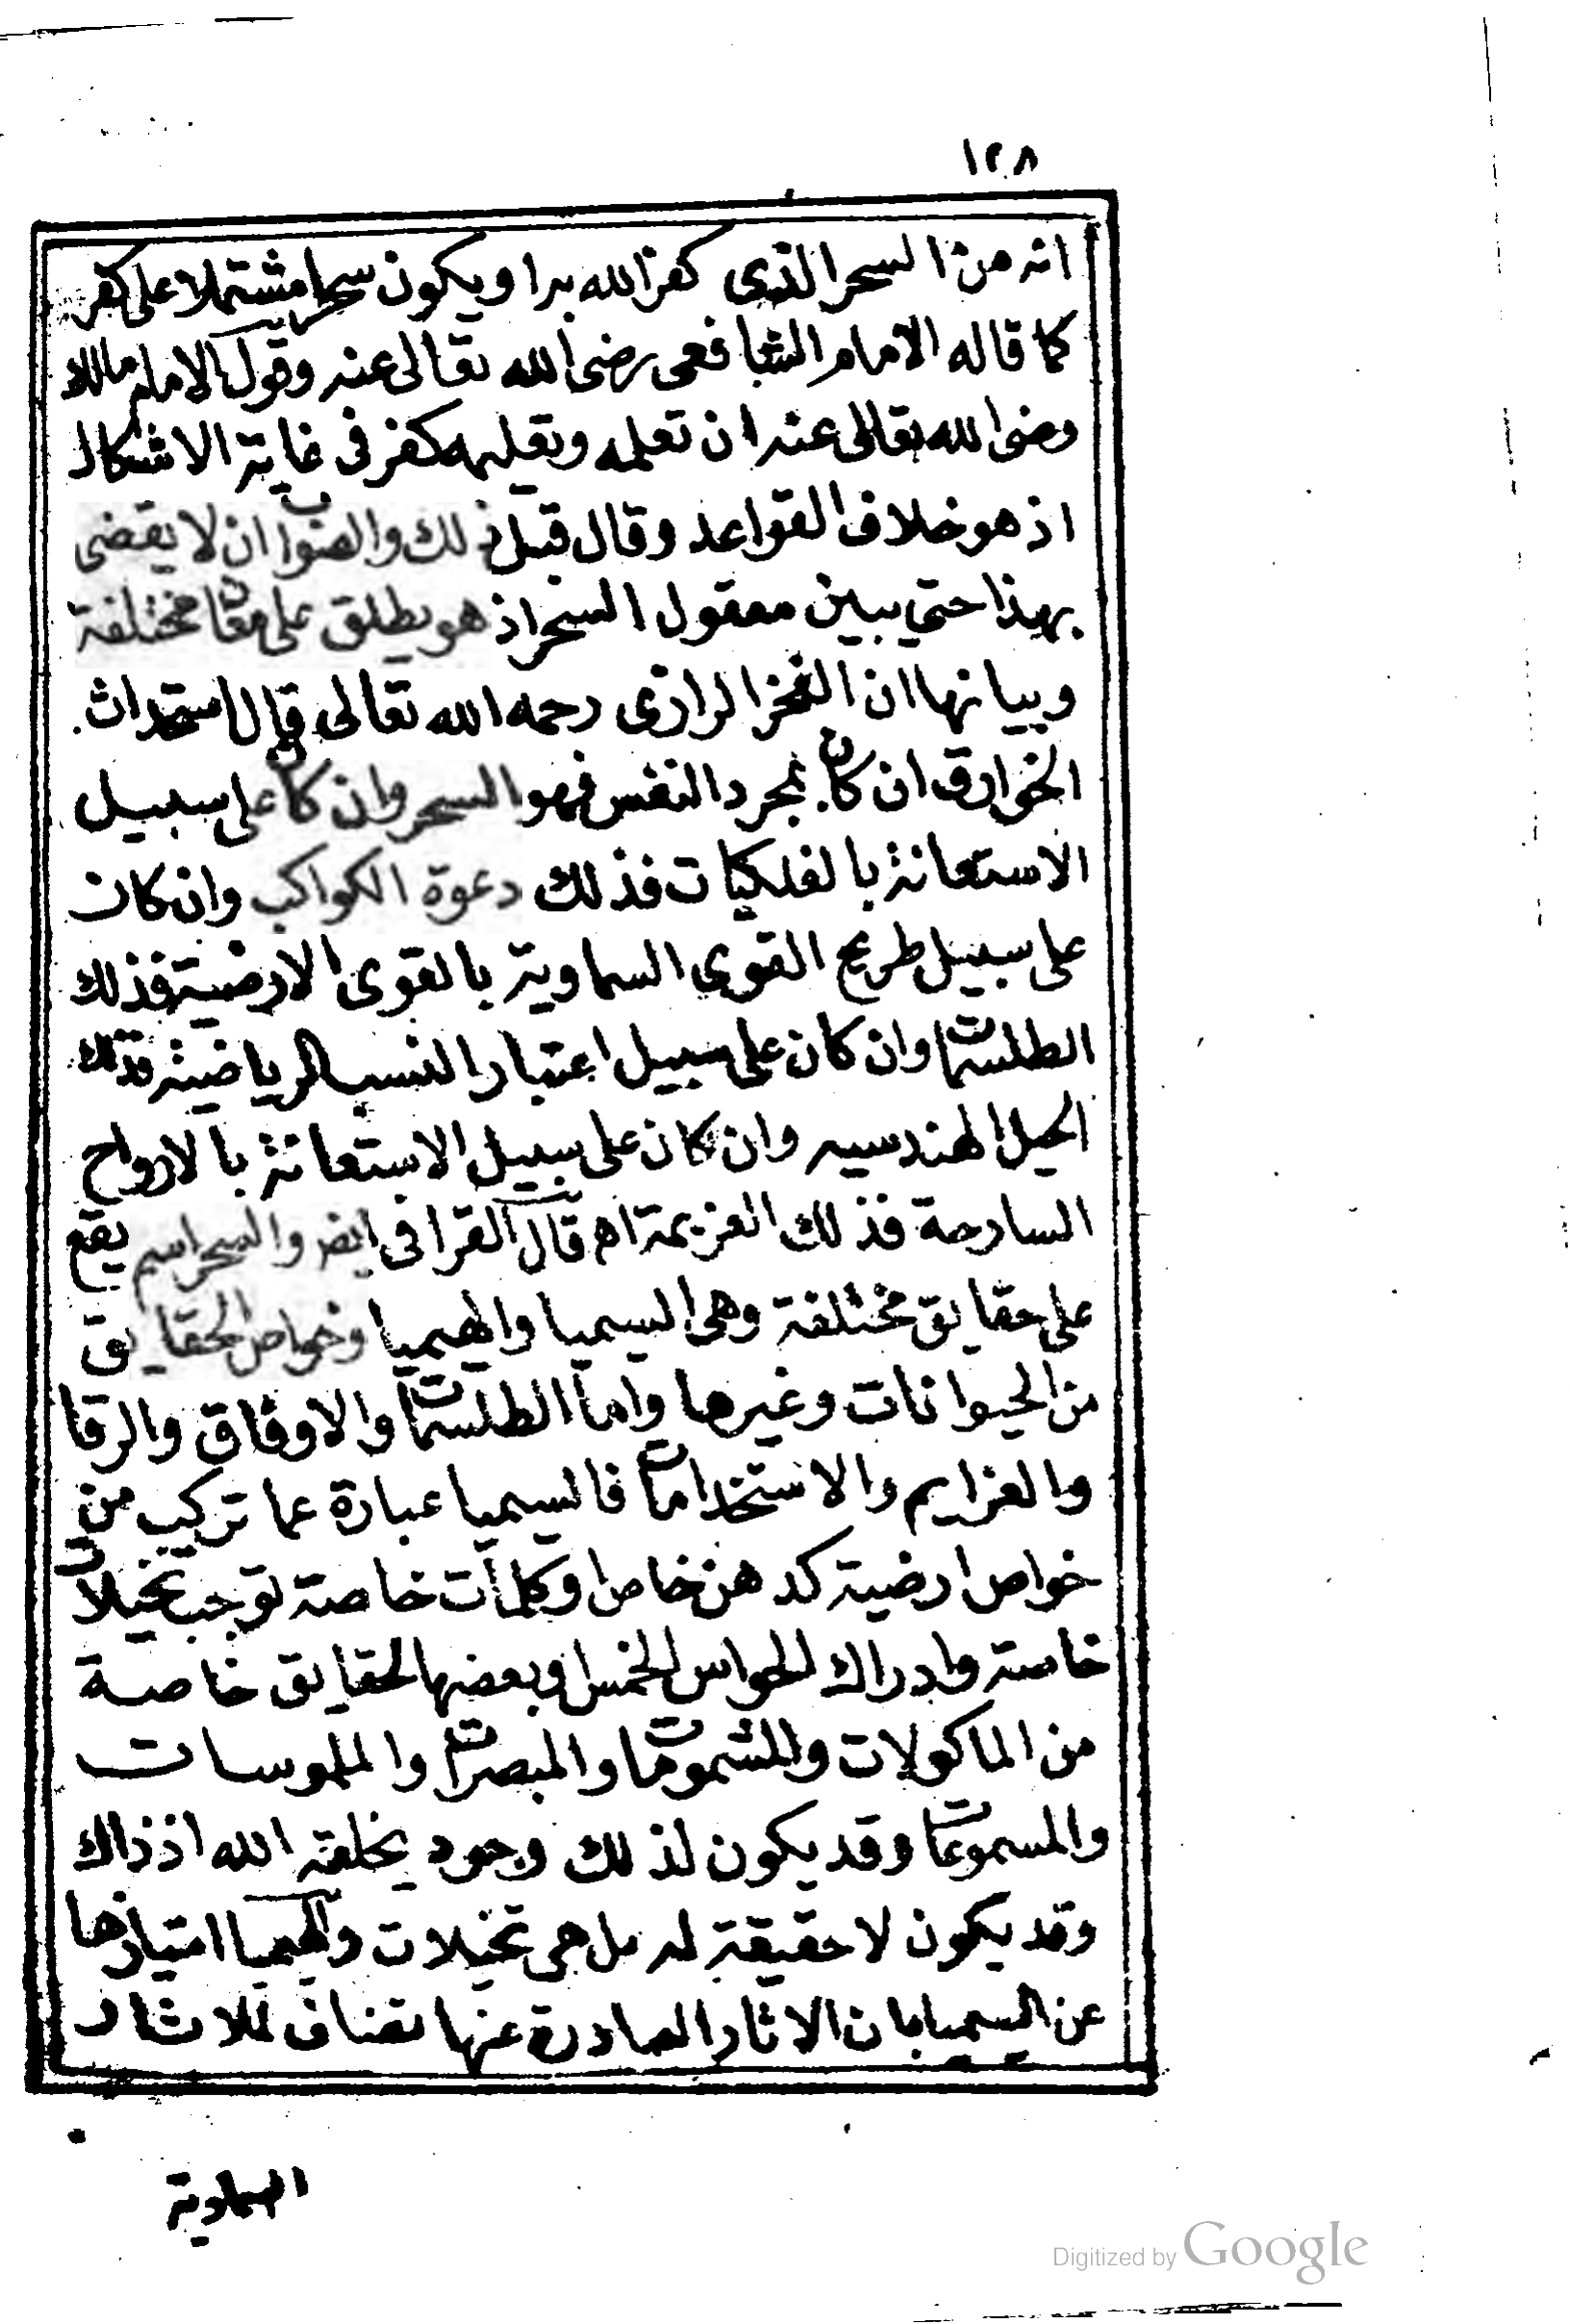 ١٢٨
انه من السحر الذى كفر الله به او يكون سحرا مشتملا على كفر
كما قاله الامام الشافعى رضى الله تعالى عنه وقول الامام مالك
رضى الله تعالى عنه ان تعلمه وتعليمه كفر فى غاية الاشكال
اذ هو خلاف القواعد وقال قبل ذلك والصواب ان لا يقضى
بهذا حتى يبين معقول السحر اذ هو يطلق على معان مختلفة
وبيانها ان الفخر الرازى رحمه الله تعالى قال استحداث
الخوارق ان كان بمجرد النفس فهو السحر وان كان على سبيل
الاستعانة بالفلكيات فذلك دعوة الكواكب وان كان
على سبيل طريح القوى السماوية بالقوى الارضية فذلك
الطلسمات وان كان على سبيل اعتبار النسب الرياضية فذلك
الحيل الهندسيه وان كان على سبيل الاستعانة بالارواح
السادحة فذلك العزيمة اه قال القرافى ايض والسحر اسم يقع
على حقايق مختلفة وهى السيميا والهيميا وخواص الحقايق
من الحيوانات وغيرها واما الطلسمات والاوفاق والرقا
والعزايم والاستخدامات فالسيميا عبارة عما تركب من
خواص ارضية كدهن خاص او كلمات خاصة توجب تخيلات
خاصة وادراك الحواس الخمس او بعضها لحقايق خاصة
من الماكولات والمشمومات والمبصرات والملموسات
والمسموعات وقد يكون لذلك وجود يخلقه الله اذ ذاك
وقد يكون لا حقيقة له بل هى تخيلات والهيميا امتيازها
عن السيميا بان الاثار الصادرة عنها تضاف للاثار
السماوية
Digitized by Google